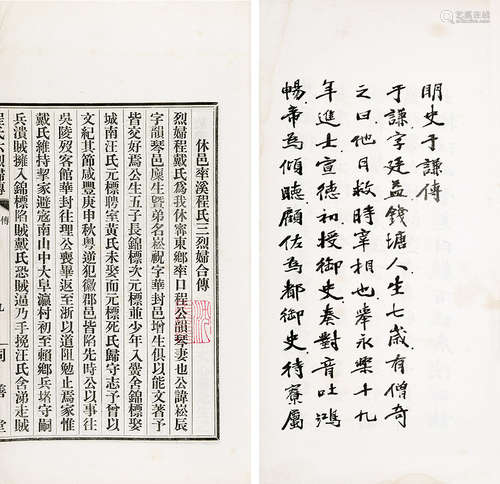 明史于謙傳
于謙字廷益錢塘人生七歲有僧奇
之曰他日救時宰相也舉永樂十九
年進士宣德初授御史奏對音吐鴻
暢帝為傾聽顧佐為都御史待寮屬
休邑率溪程氏三烈婦合傳
烈婦程戴氏為我休審東鄉率口程公韻琴妻也公諱崧辰
字韻琴邑廩生暨弟名崧祝字華封邑增生俱以能文著予
皆交好焉公生五子長錦標次元標並少年入黌舍錦標娶
城南汪氏元標聘室黃氏未娶而元標死氏歸守志予曾以
文紀其節咸豐庚申秋粵逆犯徽郡邑皆陷先時公以事往
吳陵歿客館華封往理公喪畢返至浙以道阻勉止焉家惟
戴氏維持挈家避寇南山中大阜瀛村初至賴鄉兵堵守嗣
兵潰賊擁入錦標陷賊戴氏恐賊逼乃手攪汪氏含涕走賊
程氏六烈婦傳
傳
九
同善堂